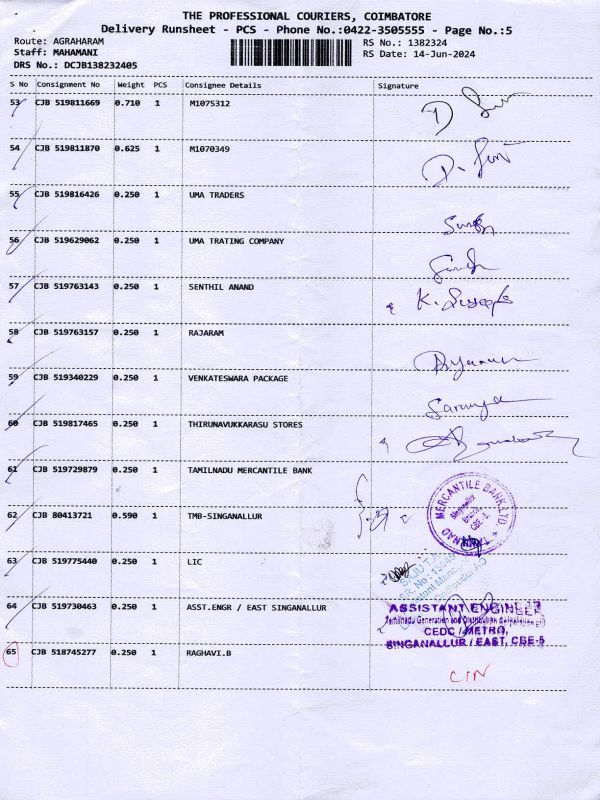 THE PROFESSIONAL COURIERS, COIMBATORE
Delivery Runsheet - PCS - Phone No.:0422-3505555 - Page No.:5
Route: AGRAHARAM
Staff: MAHAMANI
DRS No.: DCJB138232405
RS No.: 1382324
RS Date: 14-Jun-2024
S No Consignment No Weight PCS Consignee Details Signature
53 CJB 519811669 0.710 1 M1075312
54 CJB 519811870 0.625 1 M1070349
55 CJB 519816426 0.250 1 UMA TRADERS
56 CJB 519629062 0.250 1 UMA TRATING COMPANY
57 CJB 519763143 0.250 1 SENTHIL ANAND K.
58 CJB 519763157 0.250 1 RAJARAM
59 CJB 519340229 0.250 1 VENKATESWARA PACKAGE Saranya
60 CJB 519817465 0.250 1 THIRUNAVUKKARASU STORES
61 CJB 519729879 0.250 1 TAMILNADU MERCANTILE BANK
MERCANTILE BANK LTD.
Singanallur
Branch
CBE-5
62 CJB 80413721 0.590 1 TMB-SINGANALLUR
63 CJB 519775440 0.250 1 LIC
64 CJB 519730463 0.250 1 ASST.ENGR / EAST SINGANALLUR
ASSISTANT ENGINEER
Tamilnadu Generation and Distribution
CEDC / METRO,
SINGANALLUR / EAST, CBE-5
65 CJB 518745277 0.250 1 RAGHAVI.B CIN